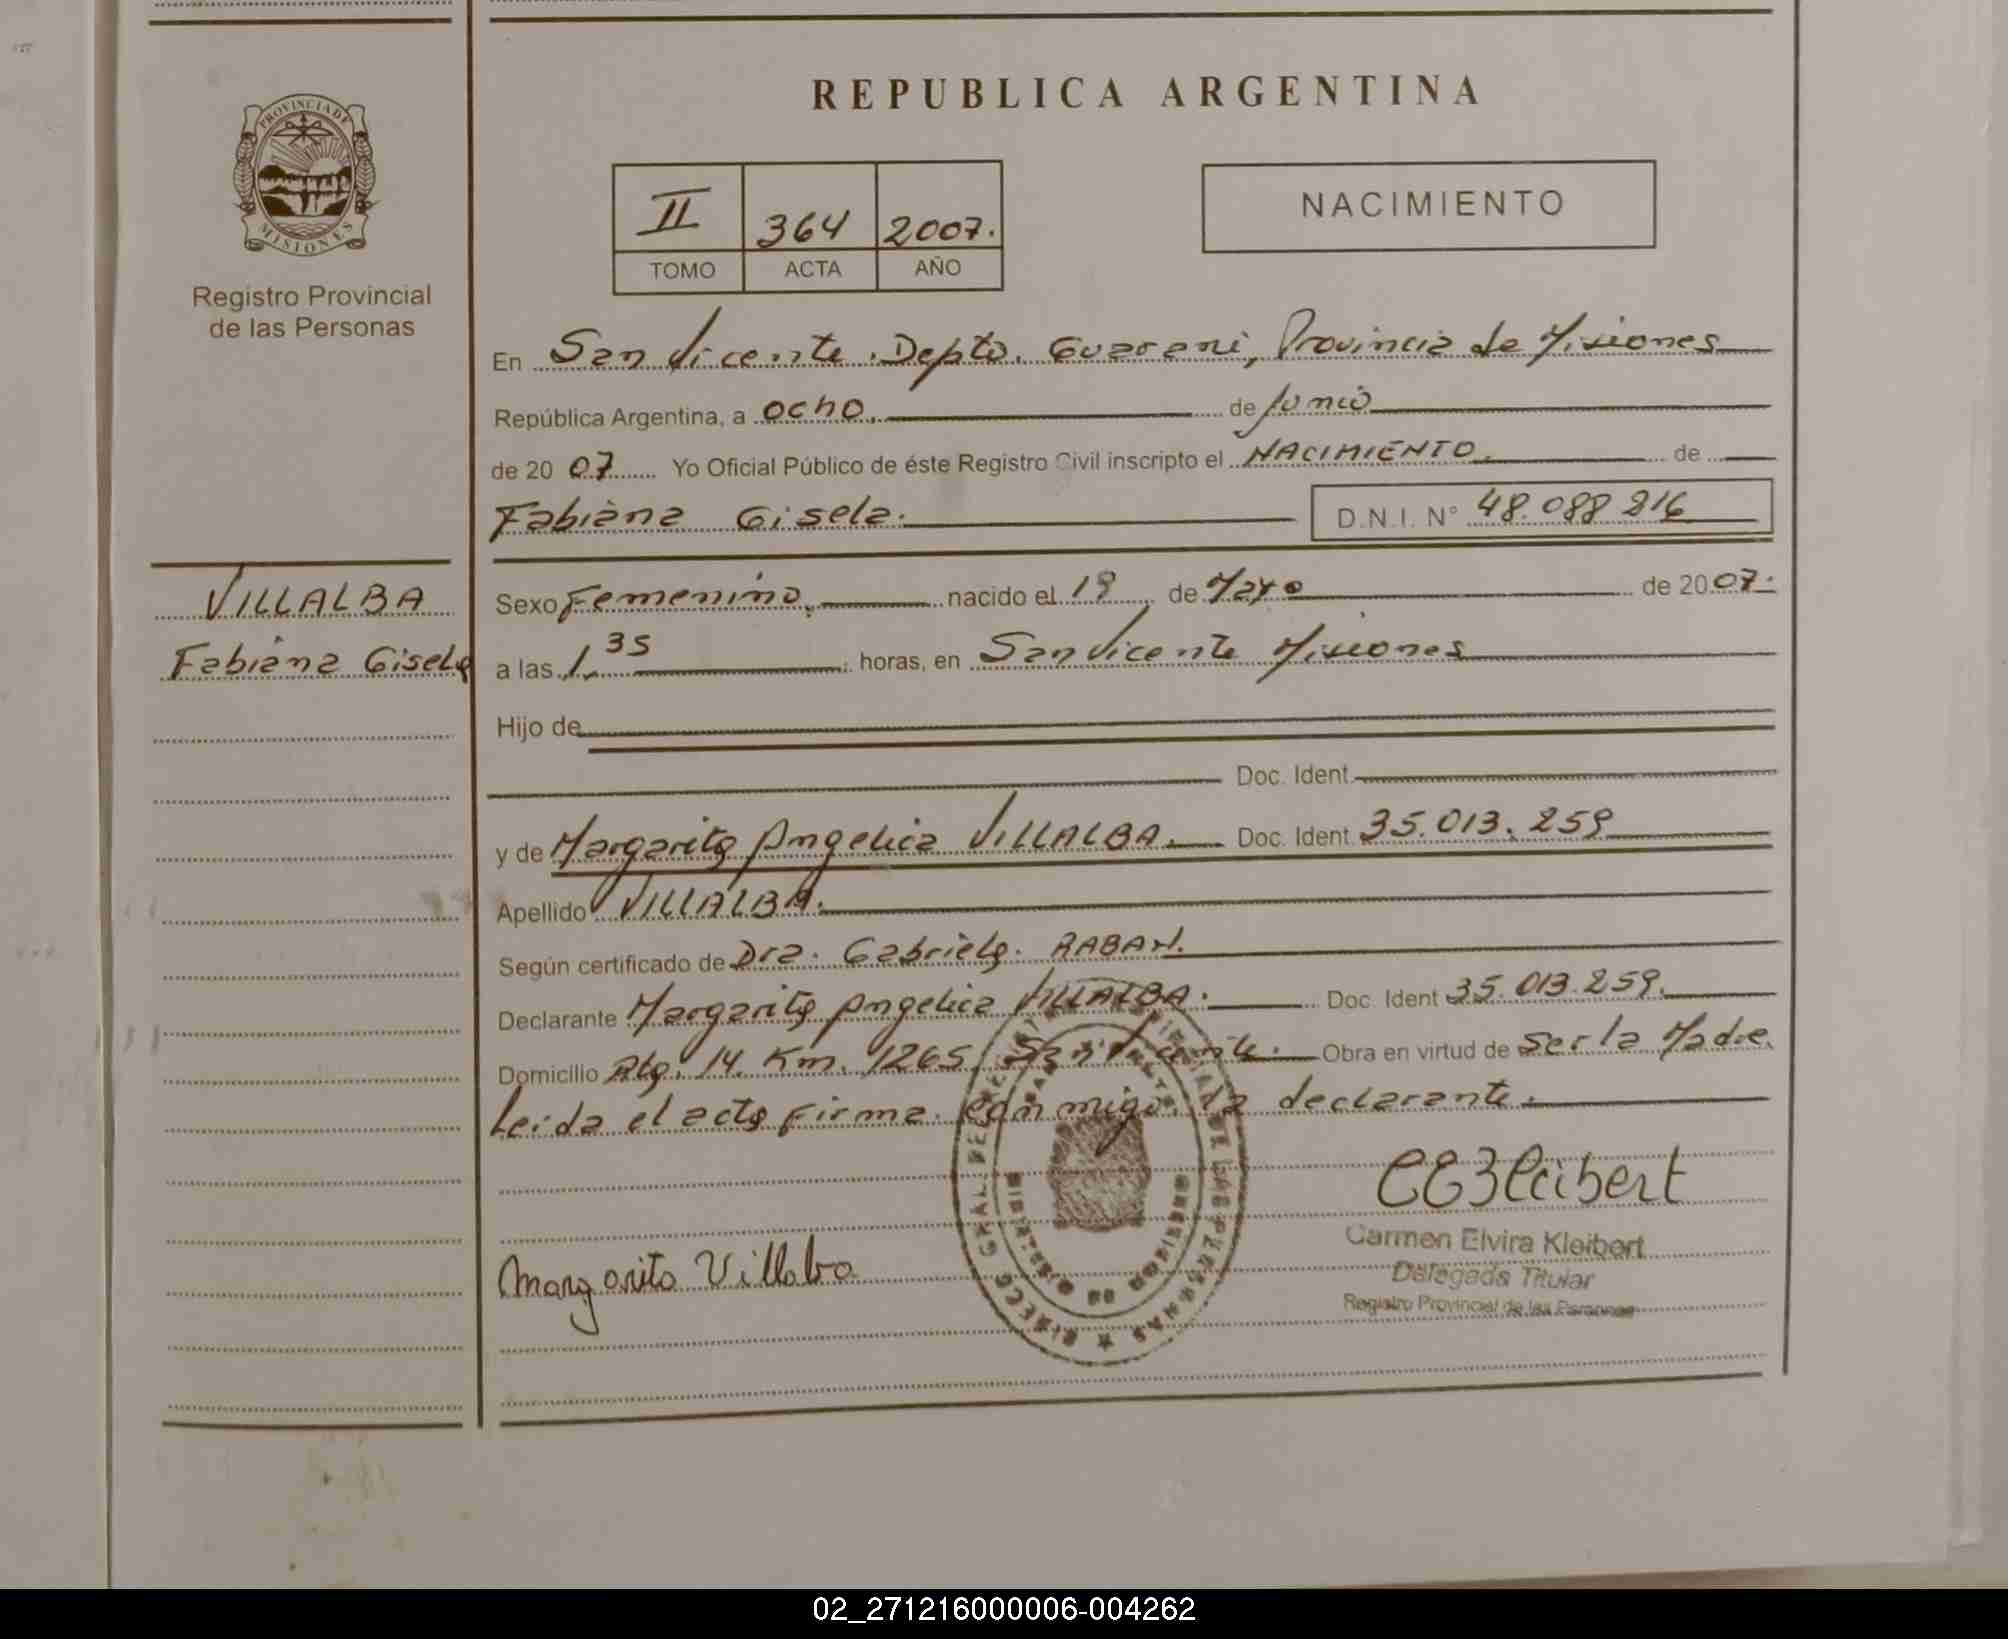 REPUBLICA ARGENTINA
PROVINCIA DE
MISIONES
Registro Provincial
de las Personas
II 364 2007.
TOMO ACTA AÑO
NACIMIENTO
En San Vicente, Depto. Guarani, Provincia de Misiones
República Argentina, a ocho. de Junio
de 20 07 Yo Oficial Público de éste Registro Civil inscripto el NACIMIENTO. de
Fabiana Gisela. D.N.I. N° 48.088.216
VILLALBA
Fabiana Gisela
Sexo Femenino. nacido el 18 de Mayo de 20 07.
a las 1.35 horas, en San Vicente Misiones
Hijo de
Doc. Ident.
y de Margarita Angelica VILLALBA. Doc. Ident. 35.013.259
Apellido VILLALBA.
Según certificado de Dra. Gabriela. RABAN.
Declarante Margarita Angelica VILLALBA. Doc. Ident 35.013.259.
Domicilio Rta. 14. Km. 1265, San Vicente. Obra en virtud de ser la Madre.
Leida el acta firma. conmigo. la declarante.
CEKleibert
Carmen Elvira Kleibert
Delegada Titular
Registro Provincial de las Personas
Margarita Villalba
02_271216000006-004262